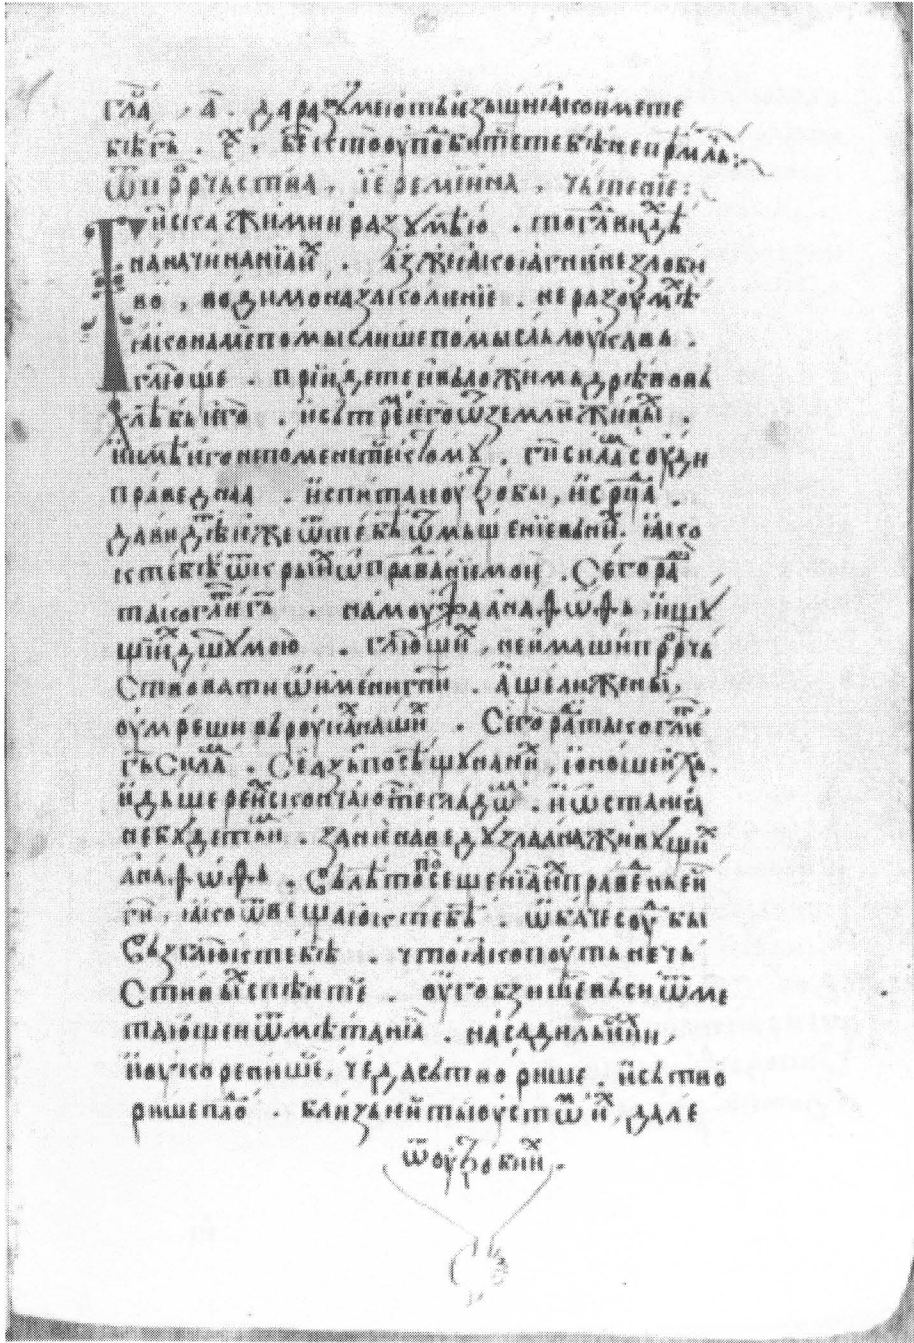 гла҃ . а҃ . да разꙋмеють ѥзыци ꙗко име те
бѣ гь҃ . г҃ . бж҃е кто ѹпⷣобит се тебѣ не прѣмльⷱ҇ :
ѿ прⷪ҇рчьства . їеремиина . чьтенїе :
Ги҃ скажи ми и разꙋмѣю . тогⷣа видⷯѣ
на начинанїа иⷯ . азже ꙗко ꙗгне незлоби
во , водимо на заколенїе . не разѹмⷯѣ
ꙗко на ме помыслише помысль лѹкавь .
гл҃юще . прїидѣте и вьложимь дрѣво вь
хлѣбь ѥго . и сьтрѣмь ѥго ѿ землѥ живыⷯ
и име ѥго не помѣнет се к томꙋ . ги҃ силамь сѹдⷤи
праведнаа . испитаѥ ѹтробы , и срⷣца .
да виждⷣѹ иже ѿ тебѣ ѿмьщенїе вь ниⷯ . ꙗко
к тебѣ ѿкрыⷯ ѡправⷣанїе моѥ . Сего раⷣ
тако глѥ҃ть гь҃ . на моуже анаѳѡѳь , ищꙋ
щїиⷯ дш҃ꙋ мою . гл҃ющиⷯ , не имаши прⷪ҇рчь
ствовати ѡ имени гн҃и . аще ли же ни ,
ѹмреши вь рѹкаⷯ нашиⷯ . Сего раⷣ тако глѥ҃
гь҃ Силамь . Се азь посѣщꙋ на ниⷯ , юноше иⷯ
и дьщере иⷯ скончают се гладѡⷨ . и ѡстанка
не бꙋдеть иⷨ . занѥ наведꙋ злаа на живꙋщиⷯ
анаѳѡѳь . вь лѣто посещенїа иⷯ праведⷩь ѥси
ги҃ , ꙗко ѿвещаю к тебѣ . ѡбаче сѹⷣбы
вьзгл҃ю к тебѣ . что ꙗко поуть нечь
стивыⷯ спѣит се . ѹгобзише вьси ѿме
тающеи ѿмѣтанїа . насадиль ѥ иⷯ ,
и ѹкоренише , чеда сьтворише . и сьтво
рише плоⷣ . близь ѥси ты ѹстѡⷨ иⷯ , дале
ѿ ѹтробь иⷯ .